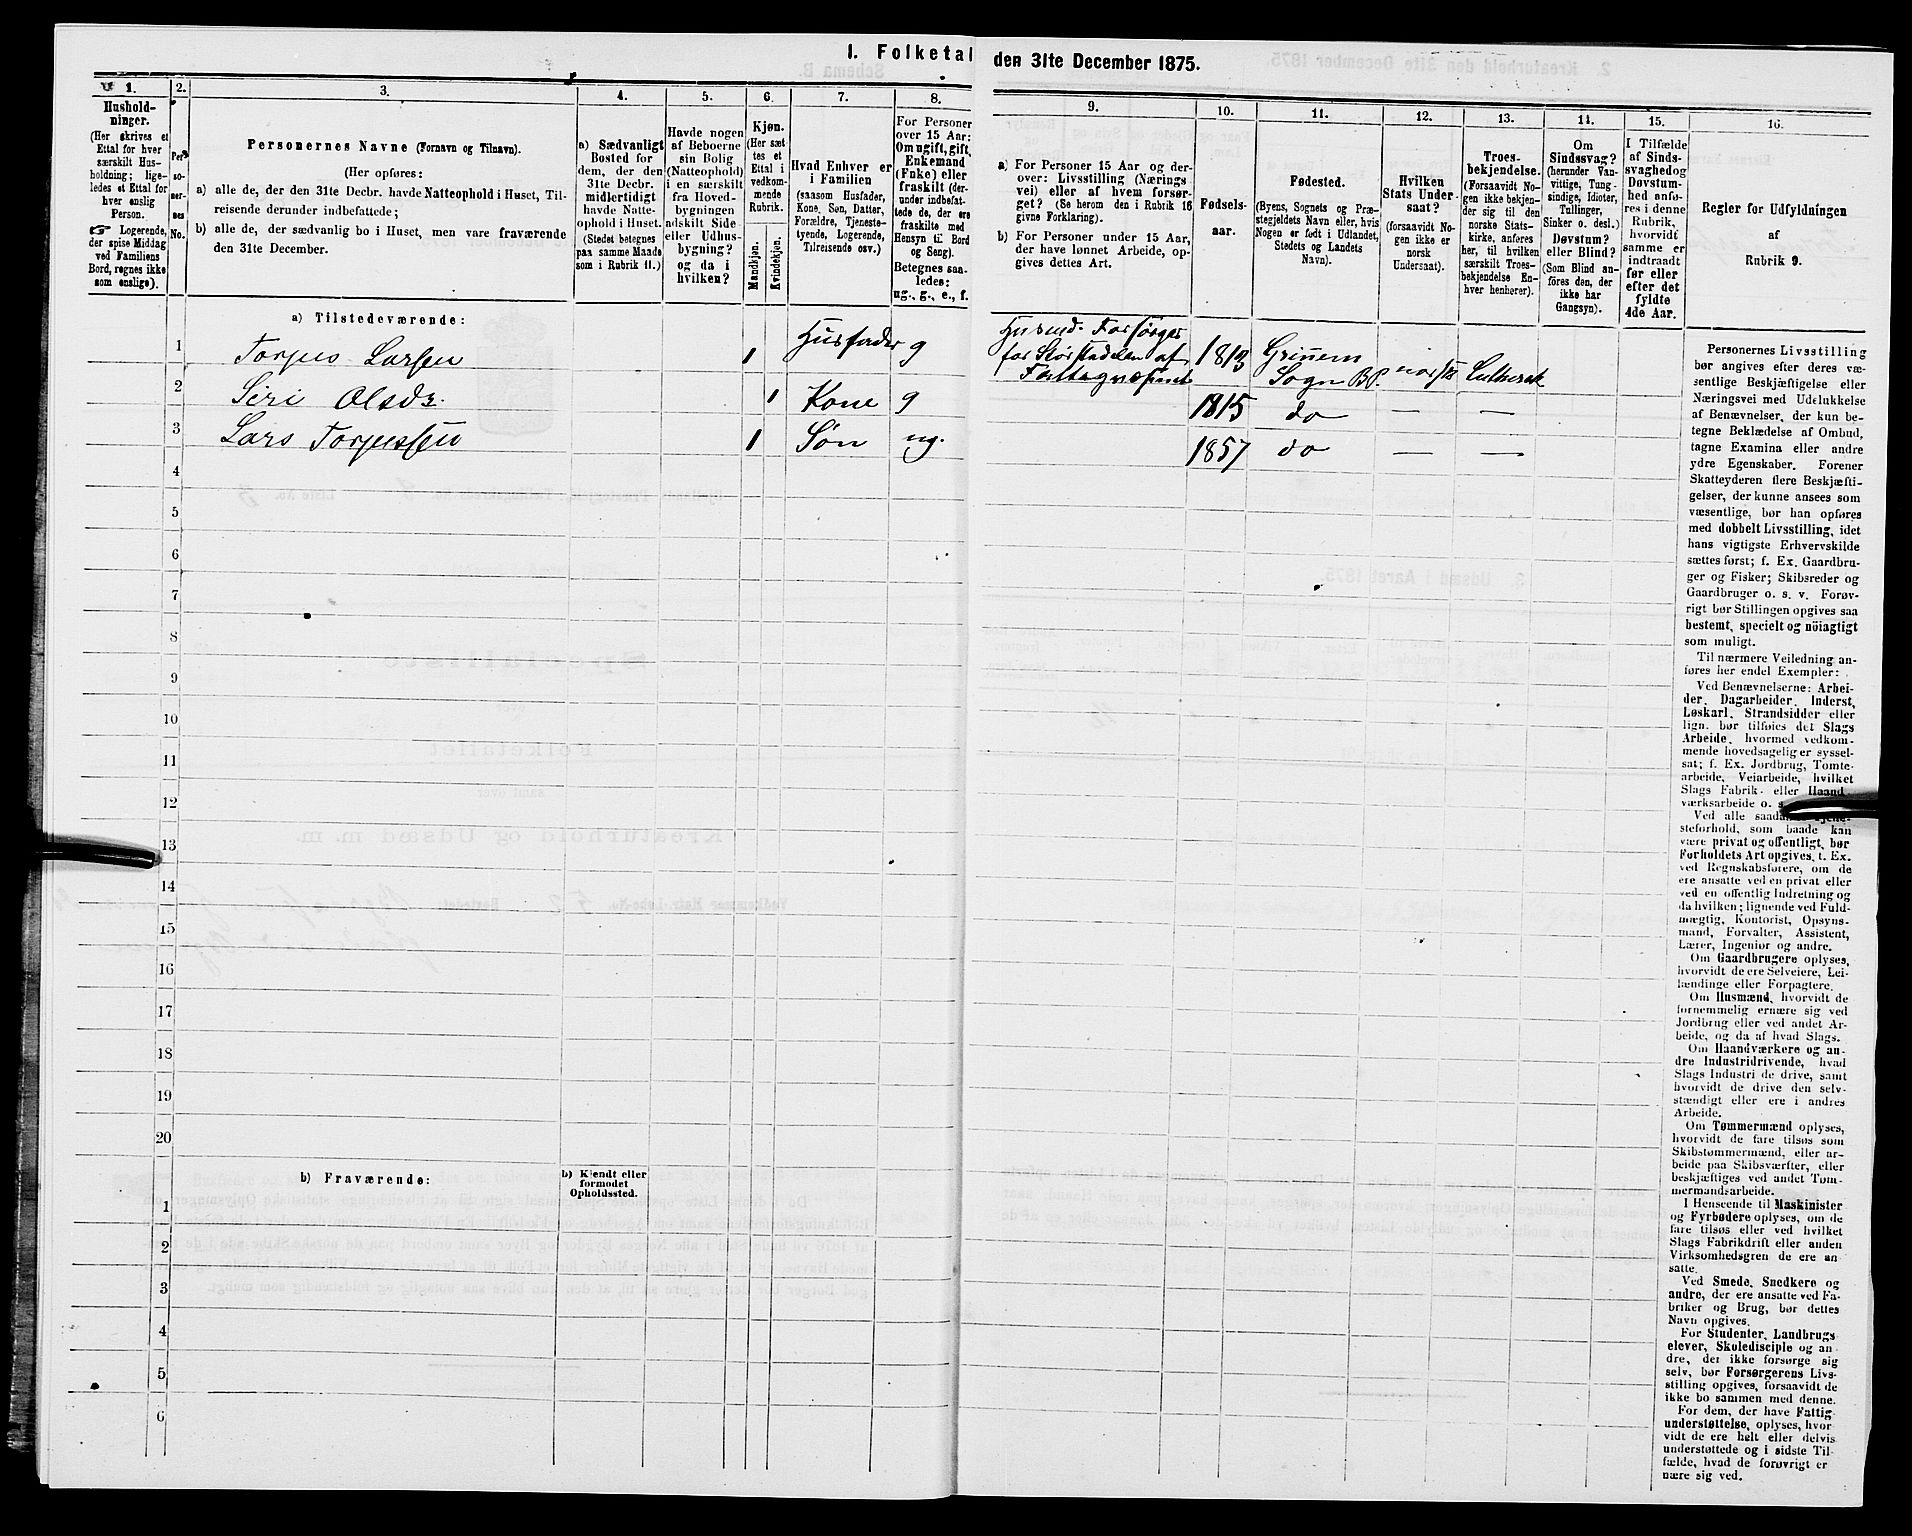 I. Folketal den 31te December 1875.
1.
Hushold-
ninger.
(Her skrives et
Ettal for hver
særskilt Hus-
holdning; lige-
ledes et Ettal for
hver enslig
Person.
☞ Logerende,
der spise Middag
ved Familiens
Bord, regnes ikke
som enslige).
2.
Per-
so-
ner-
nes
No.
3.
Personernes Navne (Fornavn og Tilnavn).
(Her opføres:
a) alle de, der den 31te Decbr. havde Natteophold i Huset, Til-
reisende derunder indbefattede;
b) alle de, der sædvanlig bo i Huset, men vare fraværende
den 31te December.
4.
a) Sædvanligt
Bosted for
dem, der den
31te Decbr.
midlertidigt
havde Natte-
ophold i Huset.
(Stedet betegnes
paa samme Maade
som i Rubrik 11.)
5.
Havde nogen
af Beboerne
sin Bolig
(Natteophold)
i en særskilt
fra Hoved-
bygningen
adskilt Side-
eller Udhus-
bygning?
og da i
hvilken?
6.
Kjøn.
(Her sæt-
tes et
Ettal i
vedkom-
mende
Rubrik.
Mandkjøn.
Kvindekjøn.
7.
Hvad Enhver er
i Familien
(saasom Husfader,
Kone, Søn, Datter,
Forældre, Tjeneste-
tyende, Logerende,
Tilreisende osv.)
8.
For Personer
over 15 Aar:
Om ugift, gift,
Enkemand
(Enke) eller
fraskilt (der-
under indbefat-
tede de, der ere
fraskilte med
Hensyn til Bord
og Seng).
Betegnes saa-
ledes:
ug., g., e., f.
9.
a) For Personer 15 Aar og der-
over: Livsstilling (Nærings-
vei) eller af hvem forsør-
get? (Se herom den i Rubrik 16
givne Forklaring).
b) For Personer under 15 Aar,
der have lønnet Arbeide, op-
gives dettes Art.
10.
Fødsels-
aar.
11.
Fødested.
(Byens, Sognets og Præ-
stegjeldets Navn eller, hvis
Nogen er født i Udlandet,
Stedets og Landets
Navn).
12.
Hvilken
Stats Under-
saat?
(forsaavidt No-
gen ikke er
norsk
Undersaat).
13.
Troes-
bekjendelse.
(Forsaavidt No-
gen ikke bekjen-
der sig til den
norske Stats-
kirke, anføres
her, til hvilken
særskilt Troes-
bekjendelse En-
hver henhører).
14.
Om
Sindssvag?
(herunder Van-
vittige, Tung-
sindige, Idioter,
Tullinger,
Sinker o. desl.)
Døvstum?
eller Blind?
(Som Blind an-
føres den, der
ikke har
Gangsyn).
15.
I Tilfælde
af Sinds-
svaghed og
Døvstum-
hed anfø-
res i denne
Rubrik,
hvorvidt
samme er
indtraadt
før eller
efter det
fyldte
4de Aar.
16.
Regler for Udfyldningen
af
Rubrik 9.
a) Tilstedeværende:
1 Torjus Larsen 1 Husfader g Husmd. Forsørges for Størstedelen af Fattigvæsenet 1813 Grinem Sogn B.P. norsk Luthersk
2 Siri Olsdr. 1 Kone g 1815 do — —
3 Lars Torjussen 1 Søn ug. 1857 do — —
4
5
6
7
8
9
10
11
12
13
14
15
16
17
18
19
20
b) Fraværende:
b) Kjendt eller
formodet
Opholdssted.
1
2
3
4
5
6
Personernes Livsstilling
bør angives efter deres væ-
sentlige Beskjæftigelse eller
Næringsvei med Udelukkelse
af Benævnelser, der kun be-
tegne Beklædelse af Ombud,
tagne Examina eller andre
ydre Egenskaber. Forener
Skatteyderen flere Beskjæfti-
gelser, der kunne ansees som
væsentlige, bør han opføres
med dobbelt Livsstilling, idet
hans vigtigste Erhvervskilde
sættes først; f. Ex. Gaardbru-
ger og Fisker; Skibsreder og
Gaardbruger o. s. v. Forøv-
rigt bør Stillingen opgives saa
bestemt, specielt og nöiagtigt
som muligt.
Til nærmere Veiledning an-
føres her endel Exempler:
Ved Benævnelserne: Arbei-
der, Dagarbeider, Inderst,
Løskarl, Strandsidder eller
lign. bør tilføies det Slags
Arbeide, hvormed vedkom-
mende hovedsagelig er syssel-
sat; f. Ex. Jordbrug, Tomte-
arbeide, Veiarbeide, hvilket
Slags Fabrik- eller Haand-
værksarbeide o. s.
Ved alle saadanne Tjene-
steforhold, som baade kan
være privat og offentligt, bør
Forholdets Art opgives, t. Ex.
ved Regnskabsførere, om de
ere ansatte ved en privat eller
ved en offentlig Indretning og
da hvilken; lignende ved Fuld-
mægtig, Kontorist, Opsyns-
mand, Forvalter, Assistent,
Lærer, Ingeniør og andre.
Om Gaardbrugere oplyses,
hvorvidt de ere Selveiere, Lei-
lændinge eller Forpagtere.
Om Husmænd, hvorvidt de
fornemmelig ernære sig ved
Jordbrug eller ved andet Ar-
beide, og da af hvad Slags.
Om Haandværkere og an-
dre Industridrivende, hvad
Slags Industri de drive, samt
hvorvidt de drive den selv-
stændigt eller ere i andres
Arbeide.
Om Tømmermænd oplyses,
hvorvidt de fare tilsøs som
Skibstømmermænd, eller ar-
beide paa Skibsværfter, eller
beskjæftiges ved andet Tøm-
mermandsarbeide.
I Henseende til Maskinister
og Fyrbødere oplyses, om de
fare tilsøs eller ved hvilket
Slags Fabrikdrift eller anden
Virksomhedsgren de ere an-
satte.
Ved Smede, Snedkere og
andre, der ere ansatte ved Fa-
briker og Brug, bør dettes
Navn opgives.
For Studenter, Landbrugs-
elever, Skoledisciple og an-
dre, der ikke forsørge sig
selv, bør Forsørgerens Livs-
stilling opgives, forsaavidt de
ikke bo sammen med denne.
For dem, der have Fattig-
understøttelse, oplyses, hvor-
vidt de ere helt eller delvis
understøttede og i sidste Til-
fælde, hvad de forøvrigt er-
nære sig ved.